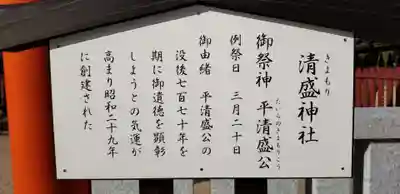 きよもり
清盛神社
御祭神　平清盛公
たいらのきよもりこう
例祭日　三月二十日
御由緒　平清盛公の
没後七百七十年を
期に御遺徳を顕彰
しようとの気運が
高まり昭和二十九年
に創建された